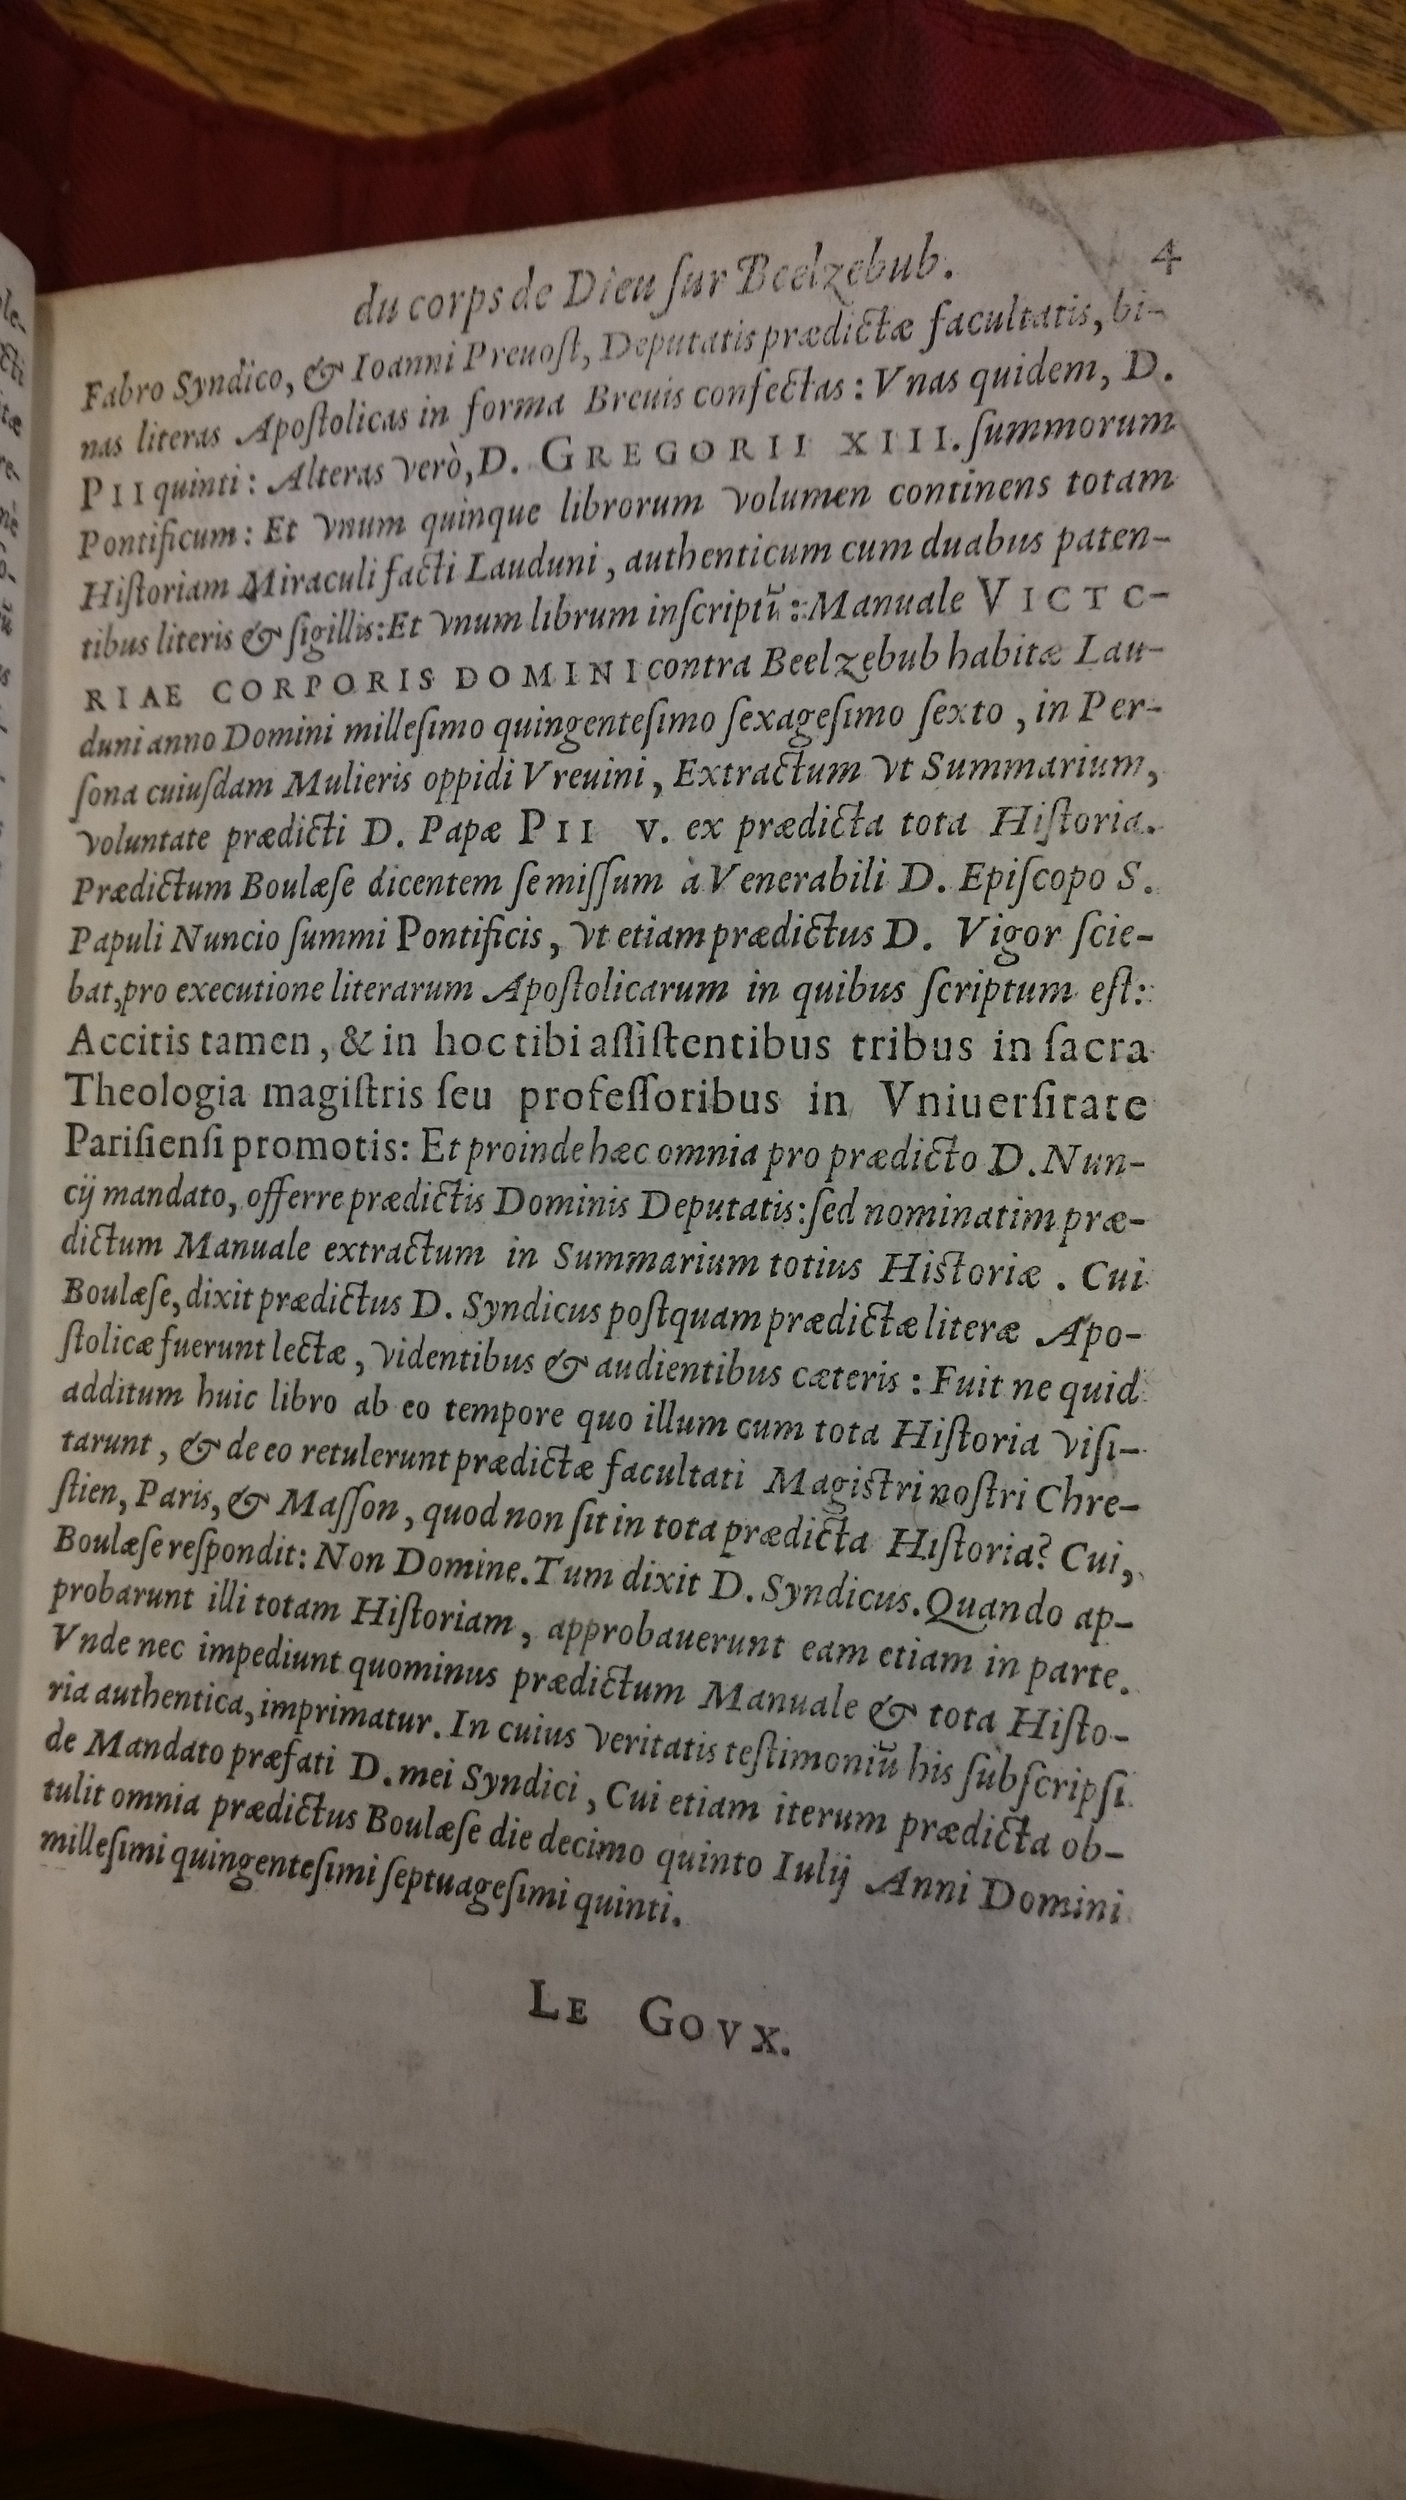 du corps de Dieu ſur Beelzebub. 4
Fabro Syndico, & Ioanni Preuoſt, Deputatis prædictæ facultatis, bi-
nas literas Apoſtolicas in forma Breuis confectas : Vnas quidem, D.
PII quinti : Alteras verò, D. GREGORII XIII. ſummorum
Pontificum : Et vnum quinque librorum volumen continens totam
Hiſtoriam Miraculi facti Lauduni, authenticum cum duabus paten-
tibus literis & ſigillis: Et vnum librum inſcriptũ : Manuale VICTO-
RIAE CORPORIS DOMINI contra Beelzebub habitæ Lau-
duni anno Domini milleſimo quingenteſimo ſexageſimo ſexto, in Per-
ſona cuiuſdam Mulieris oppidi Vreuini, Extractum vt Summarium,
voluntate prædicti D. Papæ PII V. ex prædicta tota Hiſtoria.
Prædictum Boulæſe dicentem ſe miſſum à Venerabili D. Epiſcopo S.
Papuli Nuncio ſummi Pontificis, vt etiam prædictus D. Vigor ſcie-
bat, pro executione literarum Apoſtolicarum in quibus ſcriptum eſt:
Accitis tamen, & in hoc tibi aſſiſtentibus tribus in ſacra
Theologia magiſtris ſeu profeſſoribus in Vniuerſitate
Pariſienſi promotis: Et proinde hæc omnia pro prædicto D. Nun-
cij mandato, offerre prædictis Dominis Deputatis: ſed nominatim præ-
dictum Manuale extractum in Summarium totius Hiſtoriæ. Cui
Boulæſe, dixit prædictus D. Syndicus poſtquam prædictæ literæ Apo-
ſtolicæ fuerunt lectæ, videntibus & audientibus cæteris : Fuit ne quid
additum huic libro ab eo tempore quo illum cum tota Hiſtoria viſi-
tarunt, & de eo retulerunt prædictæ facultati Magiſtri noſtri Chre-
ſtien, Paris, & Maſſon, quod non ſit in tota prædicta Hiſtoria? Cui,
Boulæſe reſpondit: Non Domine. Tum dixit D. Syndicus. Quando ap-
probarunt illi totam Hiſtoriam, approbauerunt eam etiam in parte.
Vnde nec impediunt quominus prædictum Manuale & tota Hiſto-
ria authentica, imprimatur. In cuius veritatis teſtimoniũ his ſubſcripſi
de Mandato præfati D. mei Syndici, Cui etiam iterum prædicta ob-
tulit omnia prædictus Boulæſe die decimo quinto Iulij Anni Domini
milleſimi quingenteſimi ſeptuageſimi quinti.
LE GOVX.